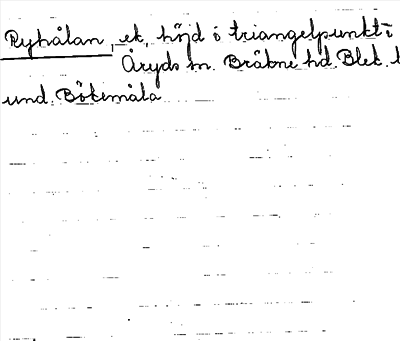 Ryhålan, ek. höjd ö triangelpunkt i
Åryds sn. Bräkne hd. Blek.
und. Bökemåla